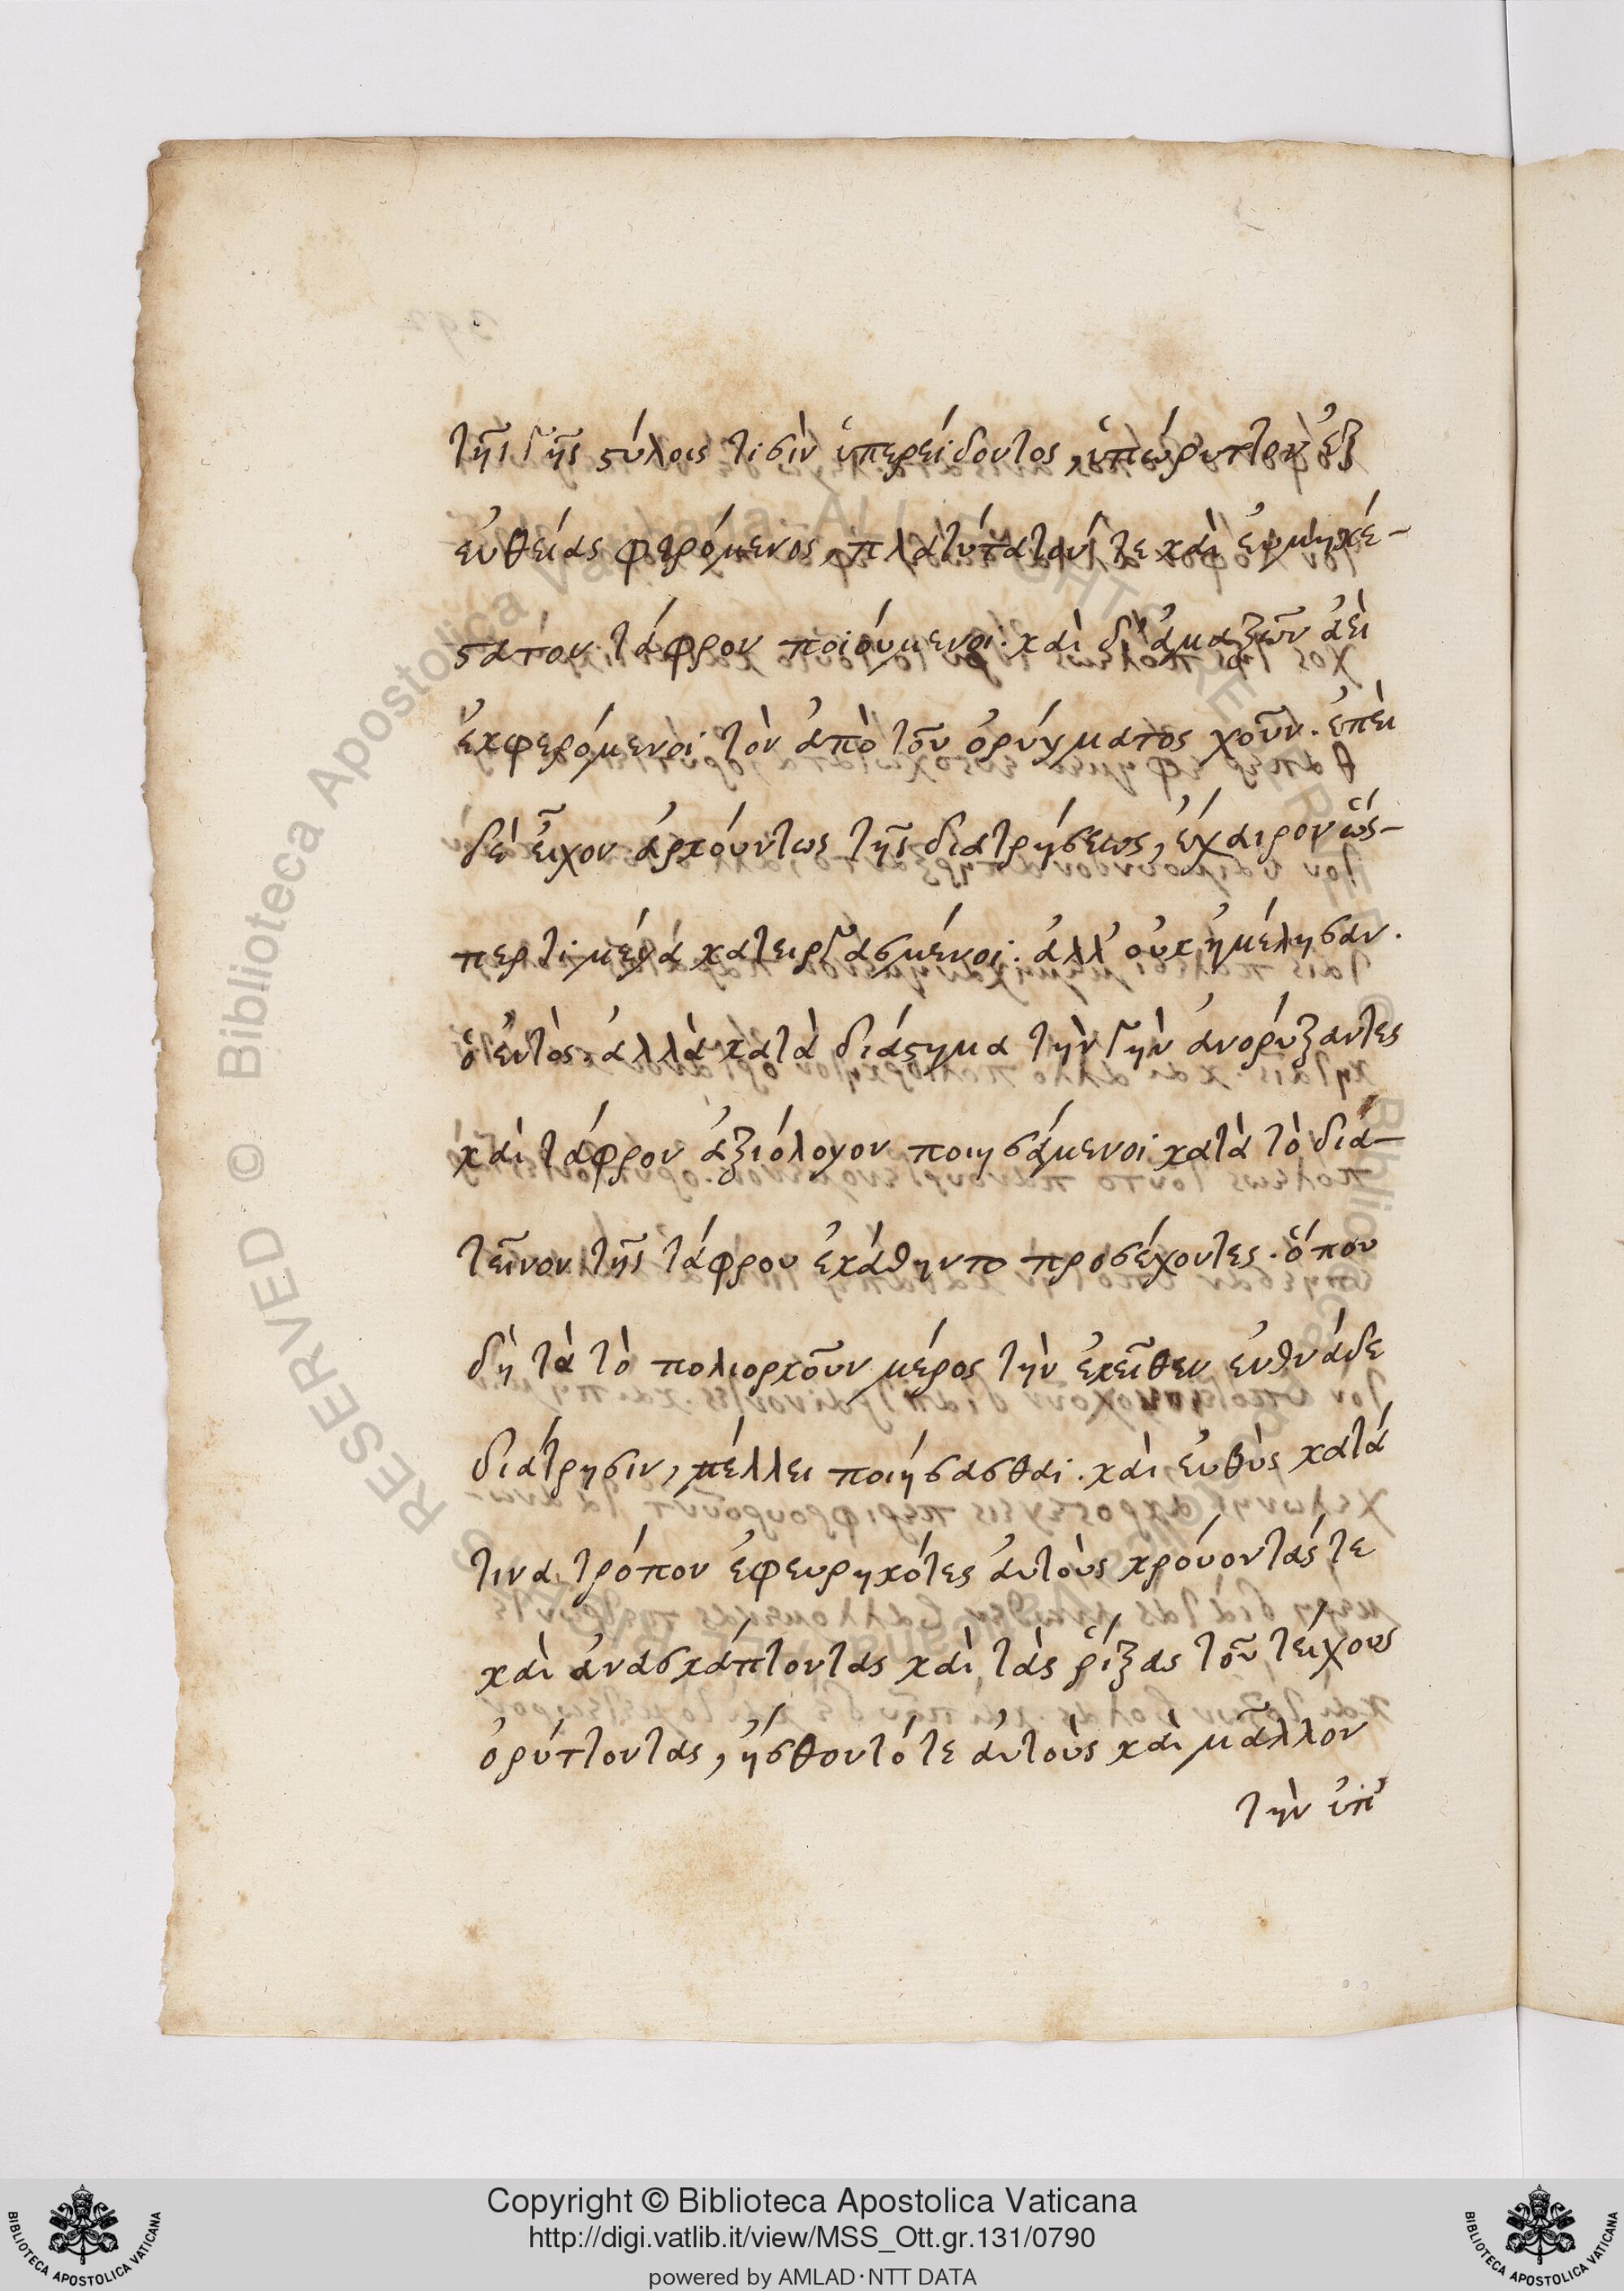 τῆς γῆς στύλοις τισὶν ὑπερείδοντος, ὑπώρυττον ἐξ
εὐθείας φερόμενος, πλατύτατόν τε καὶ εὐμηκέ-
στατον τάφρον ποιούμενοι. καὶ δι' ἁμαξῶν ἀεὶ
ἐκφερόμενοι τὸν ἀπὸ τοῦ ὀρύγματος χοῦν. ἐπεὶ
δὲ εἶχον ἀρκούντως τῆς διατρήσεως, ἔχαιρον ὥς-
περ τι μέγα κατειργασμένοι. ἀλλ' οὐκ ἠμέλησαν.
ὁ ἐντὸς. ἀλλὰ κατὰ διάστημα τὴν γὴν ἀνορύξαντες
καὶ τάφρον ἀξιόλογον ποιησάμενοι κατὰ τὸ δια-
τεῖνον τῆς τάφρου ἐκάθηντο προσέχοντες. ὅπου
δὴ τὰ τὸ πολιορκοῦν μέρος τὴν ἐκεῖθεν ἐνθάδε
διάτρησιν, μέλλει ποιήσασθαι. καὶ εὐθὺς κατά
τινα τρόπον ἐφευρηκότες αὐτοὺς κρούοντάς τε
καὶ ἀνασκάπτοντας καὶ τὰς ῥίζας τοῦ τείχους
ὀρύττοντας, ἤσθοντό τε αὐτοὺς καὶ μᾶλλον
τὴν ἐπ'
Copyright © Biblioteca Apostolica Vaticana
http://digi.vatlib.it/view/MSS_Ott.gr.131/0790
powered by AMLAD·NTT DATA
BIBLIOTECA APOSTOLICA VATICANA
BIBLIOTECA APOSTOLICA VATICANA